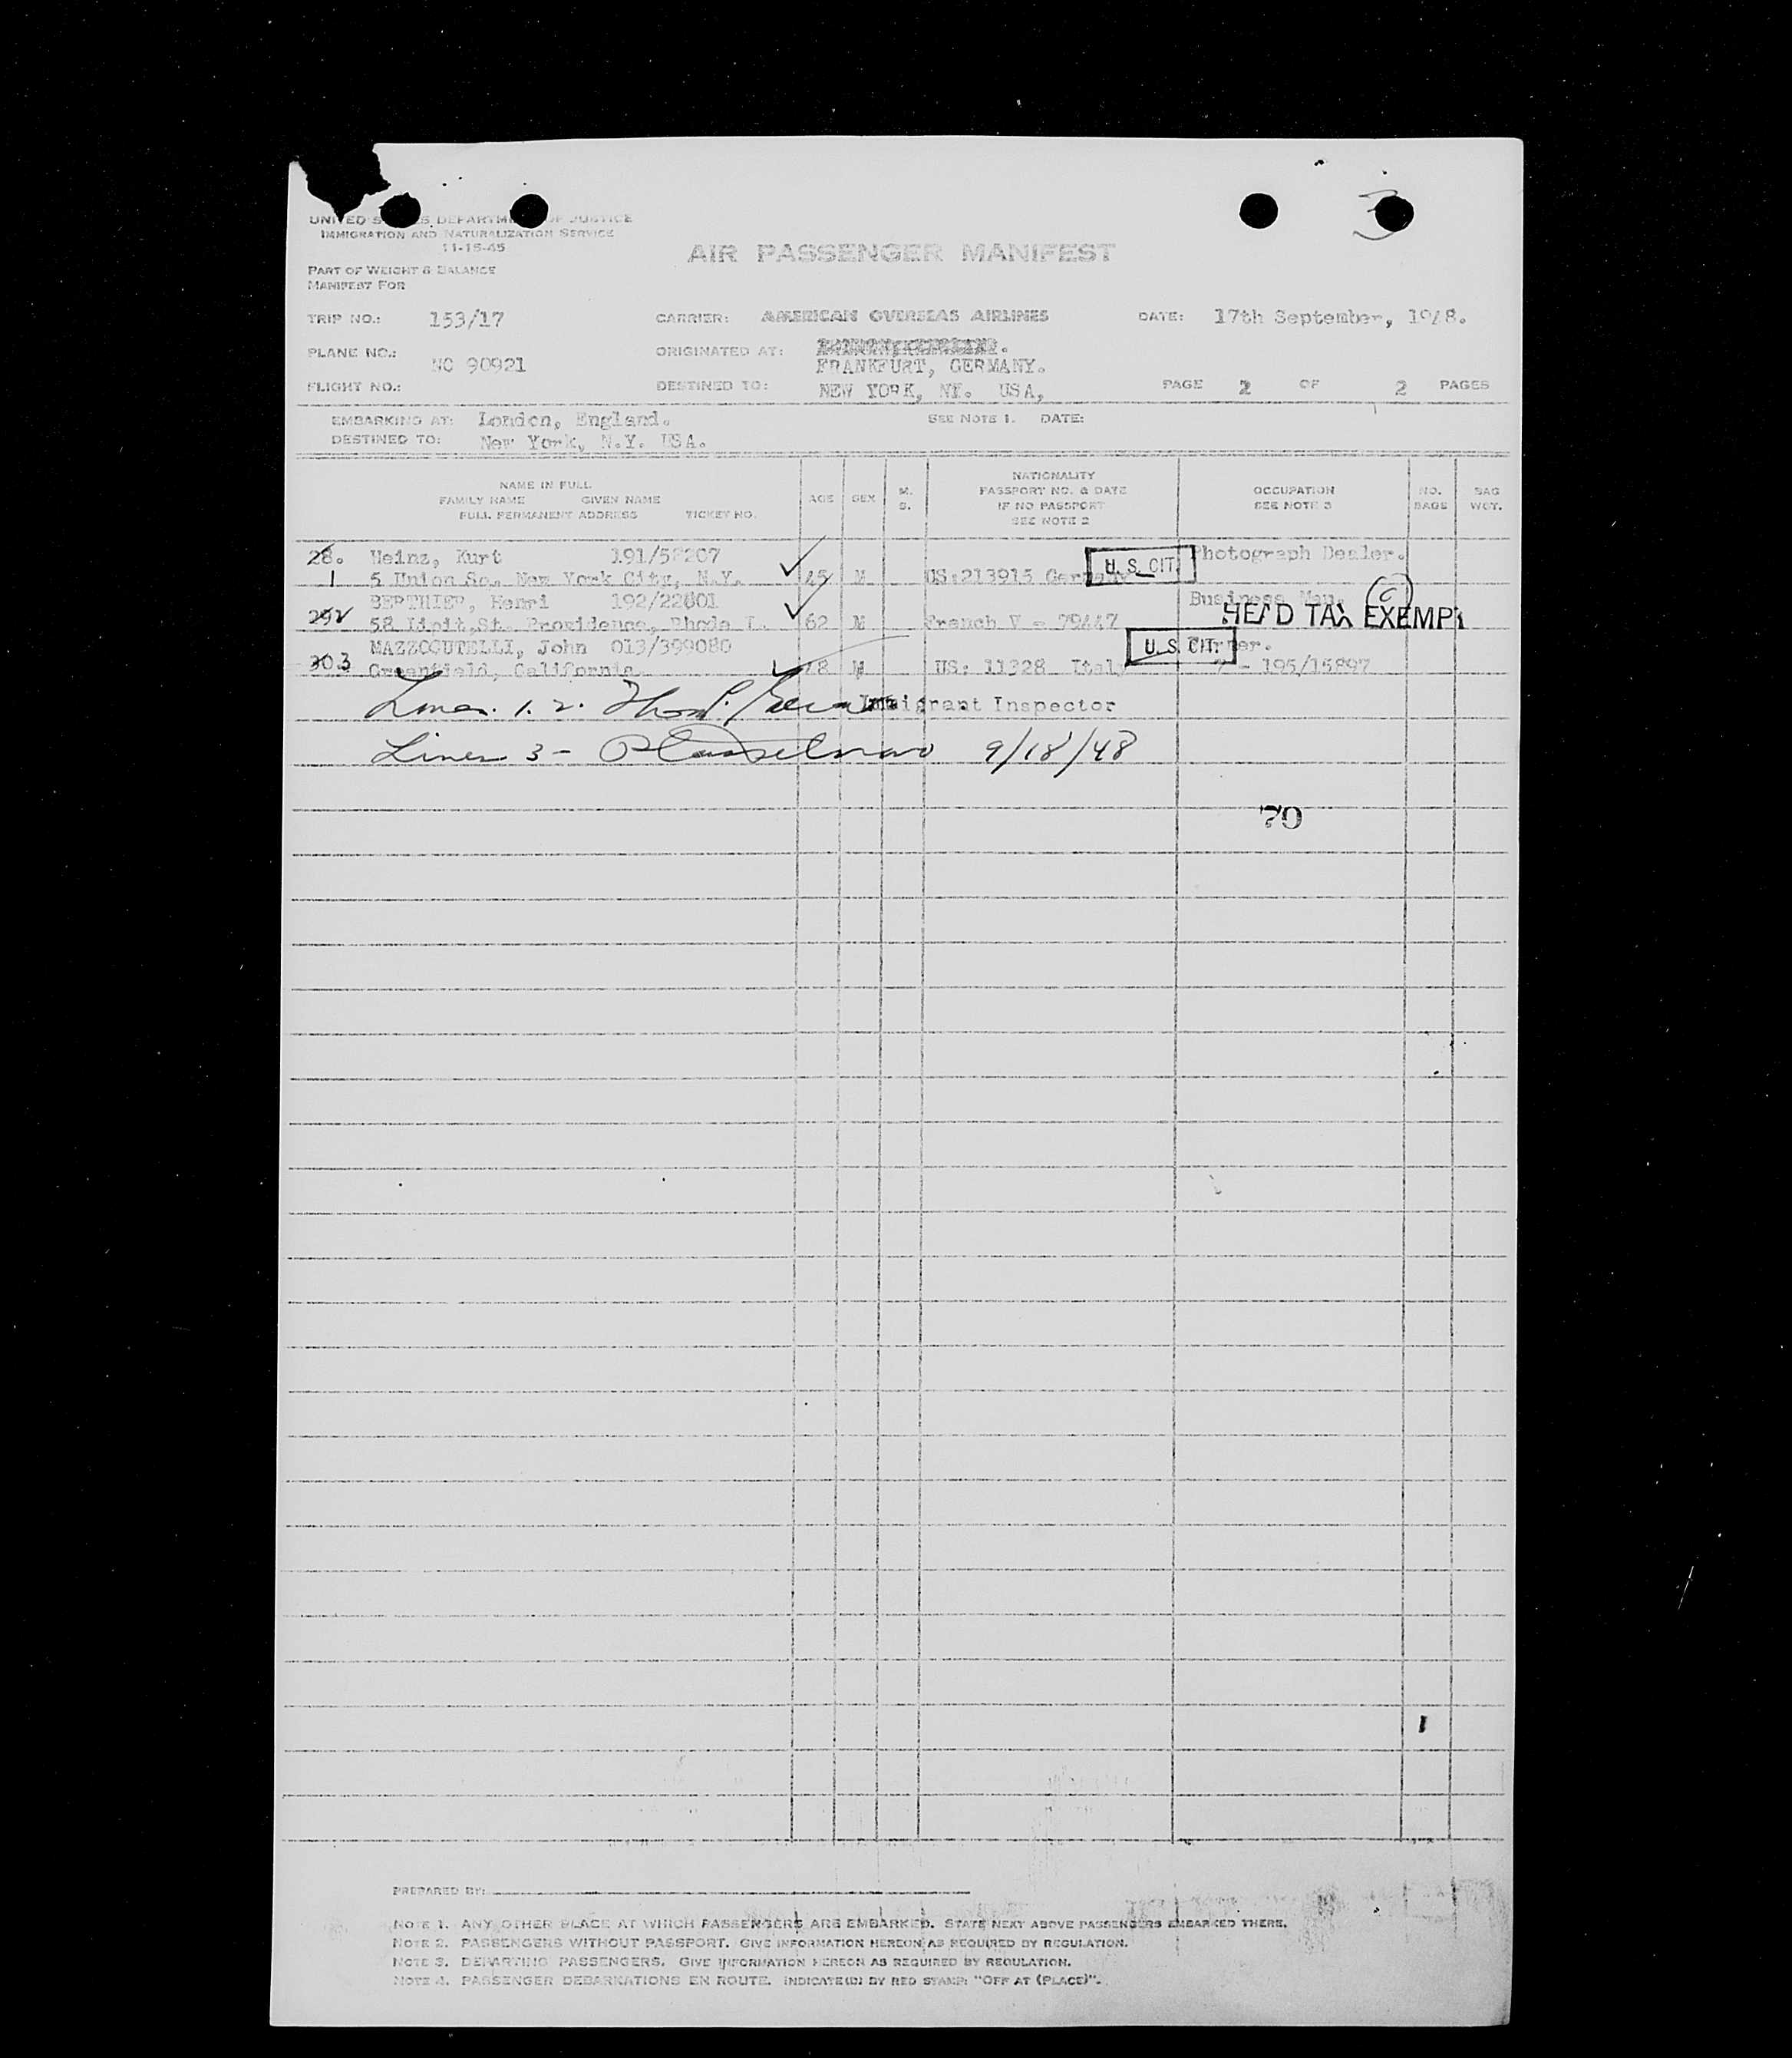 3
UNITED S S DEPARTM OF JUSTICE
IMMIGRATION AND NATURALIZATION SERVICE
11-15-45
AIR PASSENGER MANIFEST
PART OF WEIGHT & BALANCE
MANIFEST FOR
TRIP NO.: 153/17 CARRIER: AMERICAN OVERSEAS AIRLINES DATE: 17th September, 1948.
PLANE NO.: NC 90921 ORIGINATED AT: FRANKFURT, GERMANY.
FLIGHT NO.: DESTINED TO: NEW YORK, NY. USA, PAGE 2 OF 2 PAGES
EMBARKING AT: London, England. SEE NOTE 1. DATE:
DESTINED TO: New York, N.Y. USA.
NAME IN FULL
FAMILY NAME GIVEN NAME
FULL PERMANENT ADDRESS TICKET NO.
AGE SEX M. S.
NATIONALITY
PASSPORT NO. & DATE
IF NO PASSPORT
SEE NOTE 2
OCCUPATION
SEE NOTE 3
NO. BAGS
BAG WGT.
28. Heinz, Kurt Photograph Dealer.
1 5 Union Sq. New York City, N.Y. 45 M US:213915 Germany U. S. CIT.
BERTHIER, Henri 192/22601 Business Man.
29 2 58 St. Providence, Rhode I. 62 M French V - 79447 HEAD TAX EXEMPT
MAZZOCUTELLI, John 013/399080 U. S. CIT.
30 3 Greenfield, California M US: 11328 Italy - 195/15897
Lines. 1. 2. Immigrant Inspector
Lines 3 - 9/18/48
70
1
PREPARED BY:
NOTE 1. ANY OTHER PLACE AT WHICH PASSENGERS ARE EMBARKED. STATE NEXT ABOVE PASSENGERS EMBARKED THERE.
NOTE 2. PASSENGERS WITHOUT PASSPORT. GIVE INFORMATION HEREON AS REQUIRED BY REGULATION.
NOTE 3. DEPARTING PASSENGERS. GIVE INFORMATION HEREON AS REQUIRED BY REGULATION.
NOTE 4. PASSENGER DEBARKATIONS EN ROUTE. INDICATE(D) BY RED STAMP: "OFF AT (PLACE)".